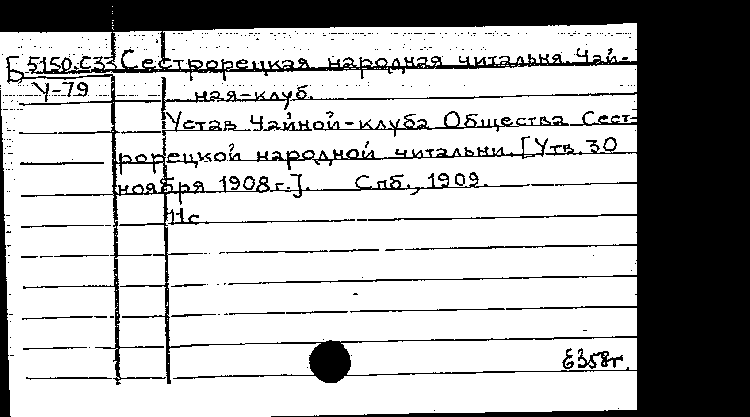 Б 5150.С33 Сестрорецкая народная читальня. Чай-
У-79 ная-клуб.
Устав Чайной-клуба Общества Сест-
рорецкой народной читальни. [Утв. 30
ноября 1908 г.]. Спб., 1909.
11с.
Е358г.